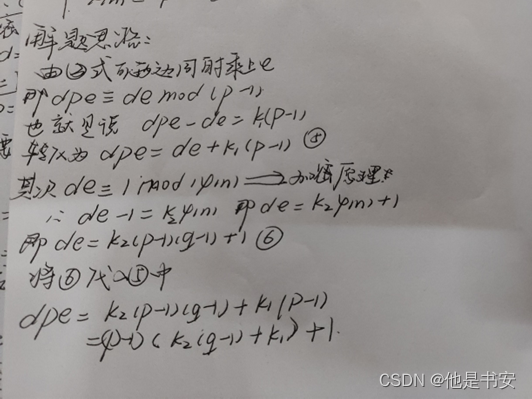 解题思路:
由④式可两边同时乘上e
即 dpe ≡ de mod (p-1)
也就是说 dpe - de = k₁(p-1)
转化为 dpe = de + k₁(p-1) ⑤
其次 de ≡ 1 mod φ(n) ⟹ 加密原理
∴ de - 1 = k₂φ(n) 即 de = k₂φ(n) + 1
即 de = k₂(p-1)(q-1) + 1 ⑥
将⑥代入⑤中
dpe = k₂(p-1)(q-1) + k₁(p-1)
= (p-1)(k₂(q-1) + k₁) + 1.
CSDN @他是书安